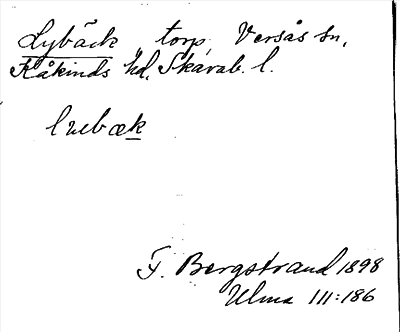 Lybäck torp, Versås sn,
Kåkinds hd, Skarab. l.
F. Bergstrand 1898
Ulma III:186